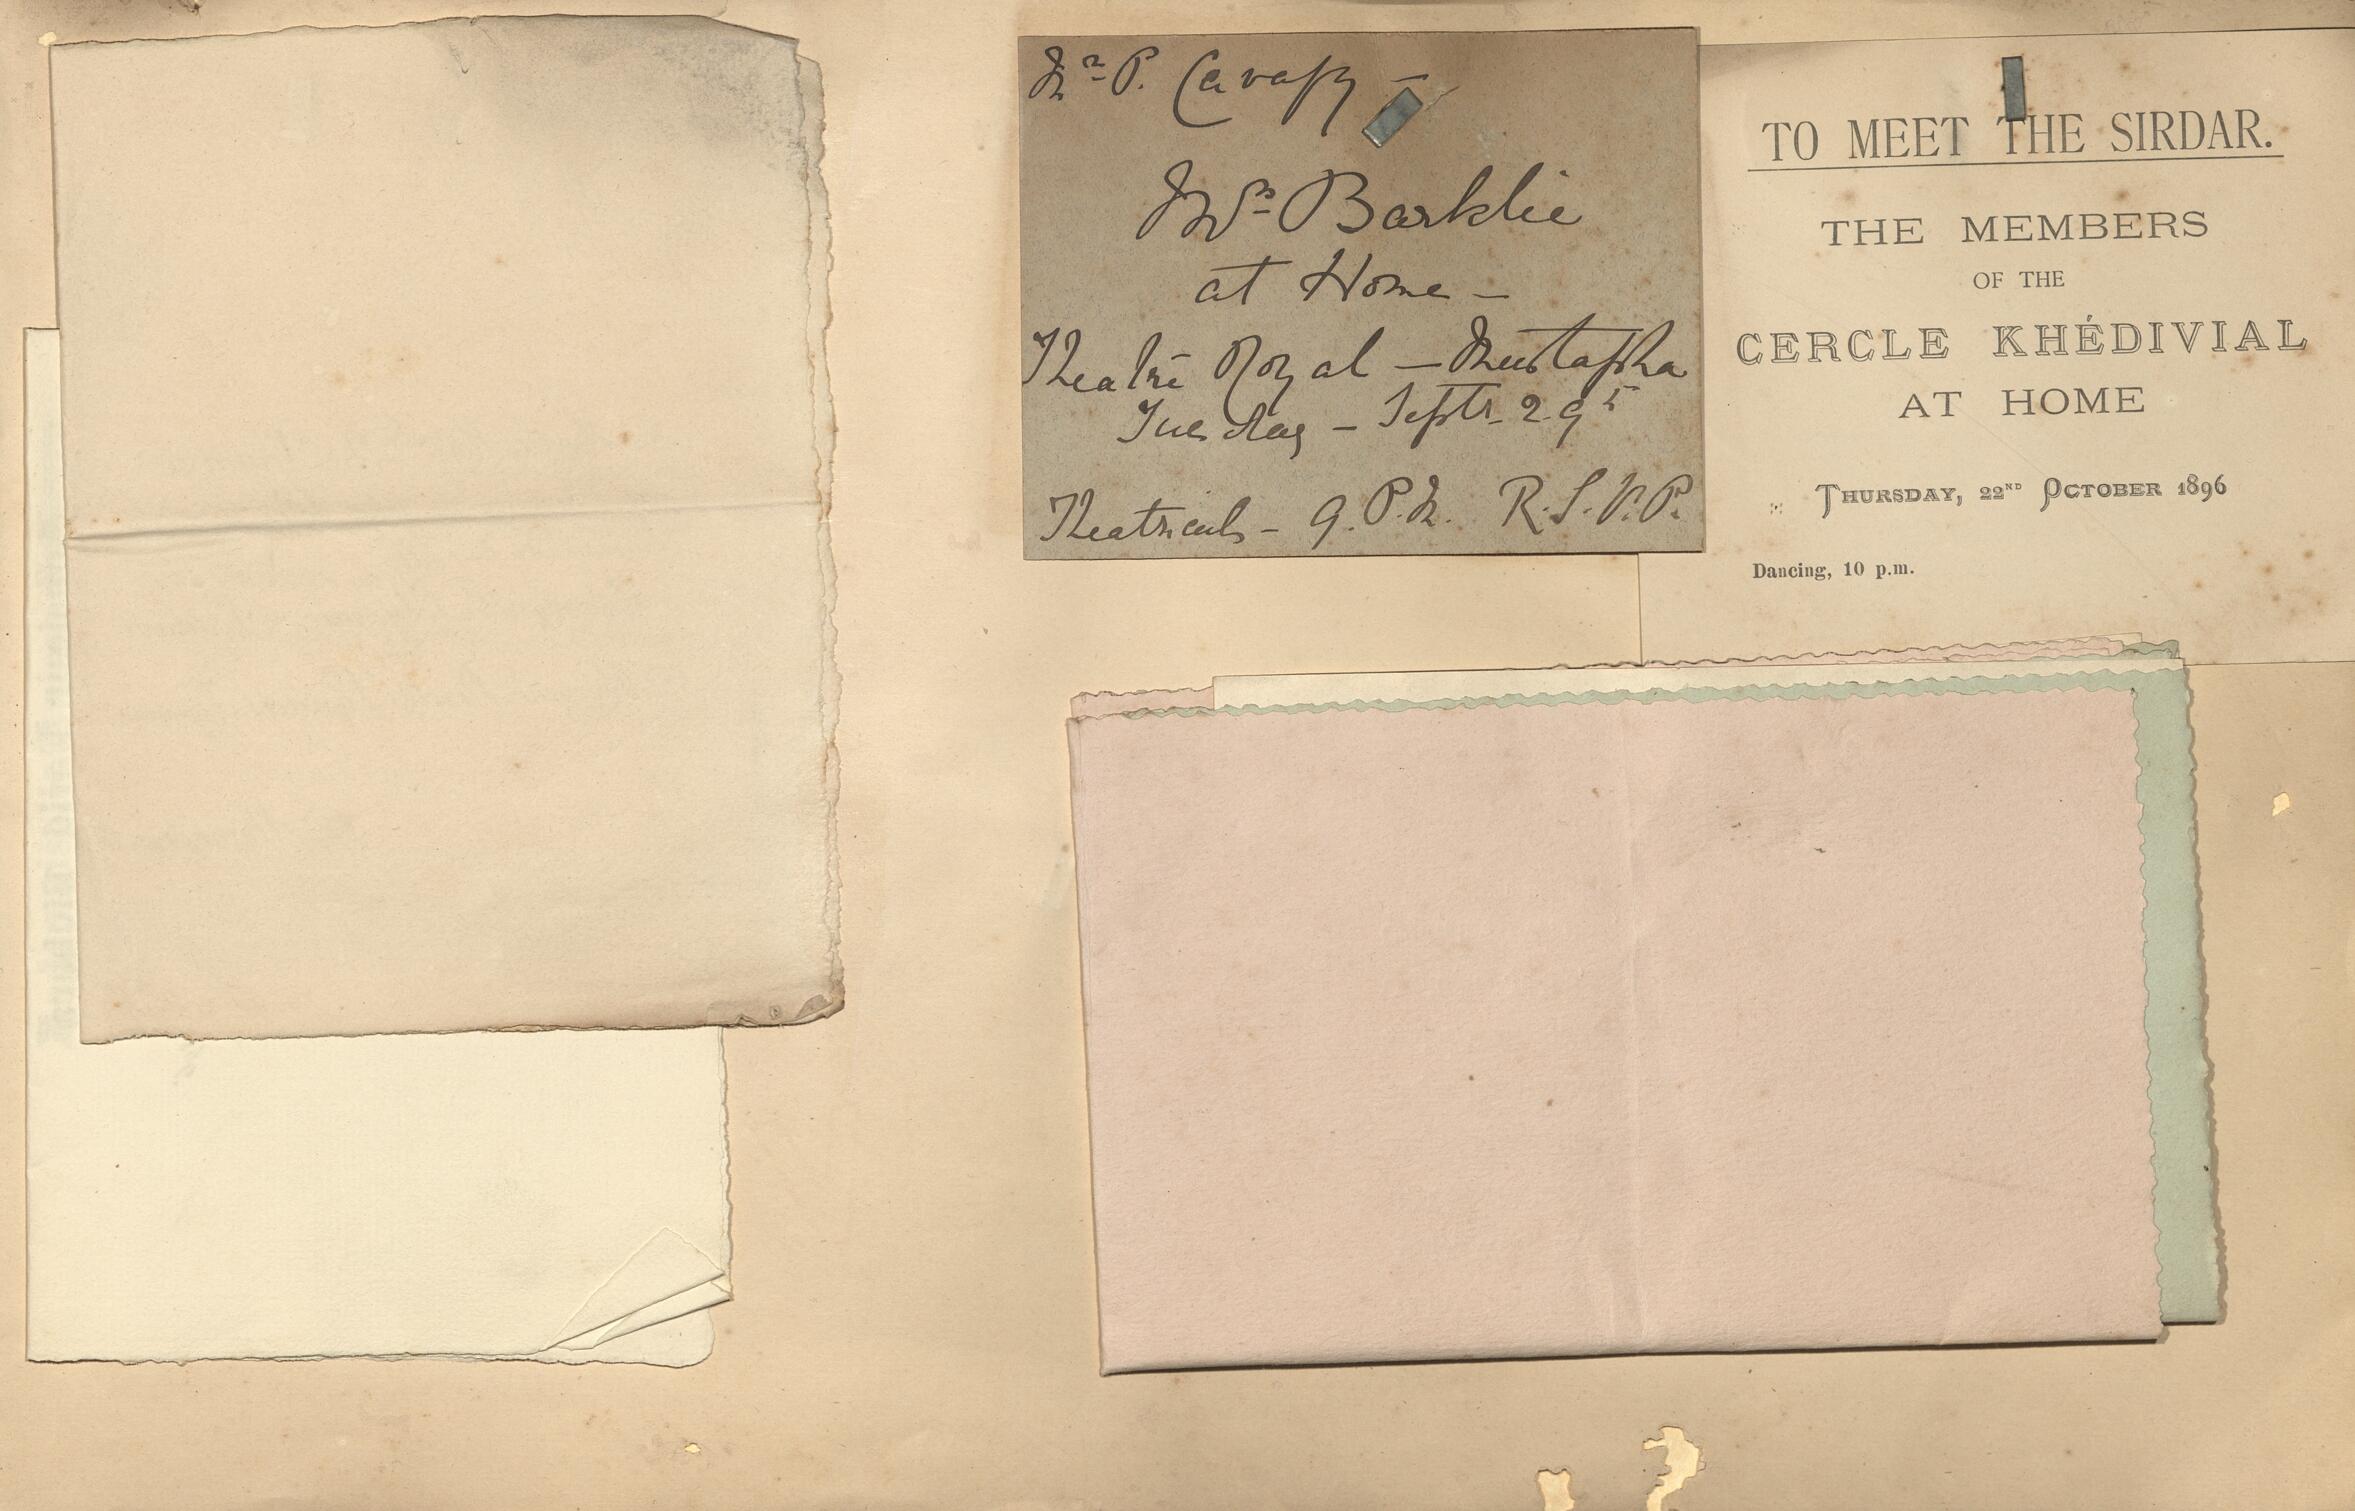 Mr P. Cavafy —
Mrs Barklie
at Home —
Theatre Royal — Mustapha
Tuesday — Septr. 29th
Theatricals — 9. P.M. R.S.V.P.
TO MEET THE SIRDAR.
THE MEMBERS
OF THE
CERCLE KHÉDIVIAL
AT HOME
THURSDAY, 22ND OCTOBER 1896
Dancing, 10 p.m.